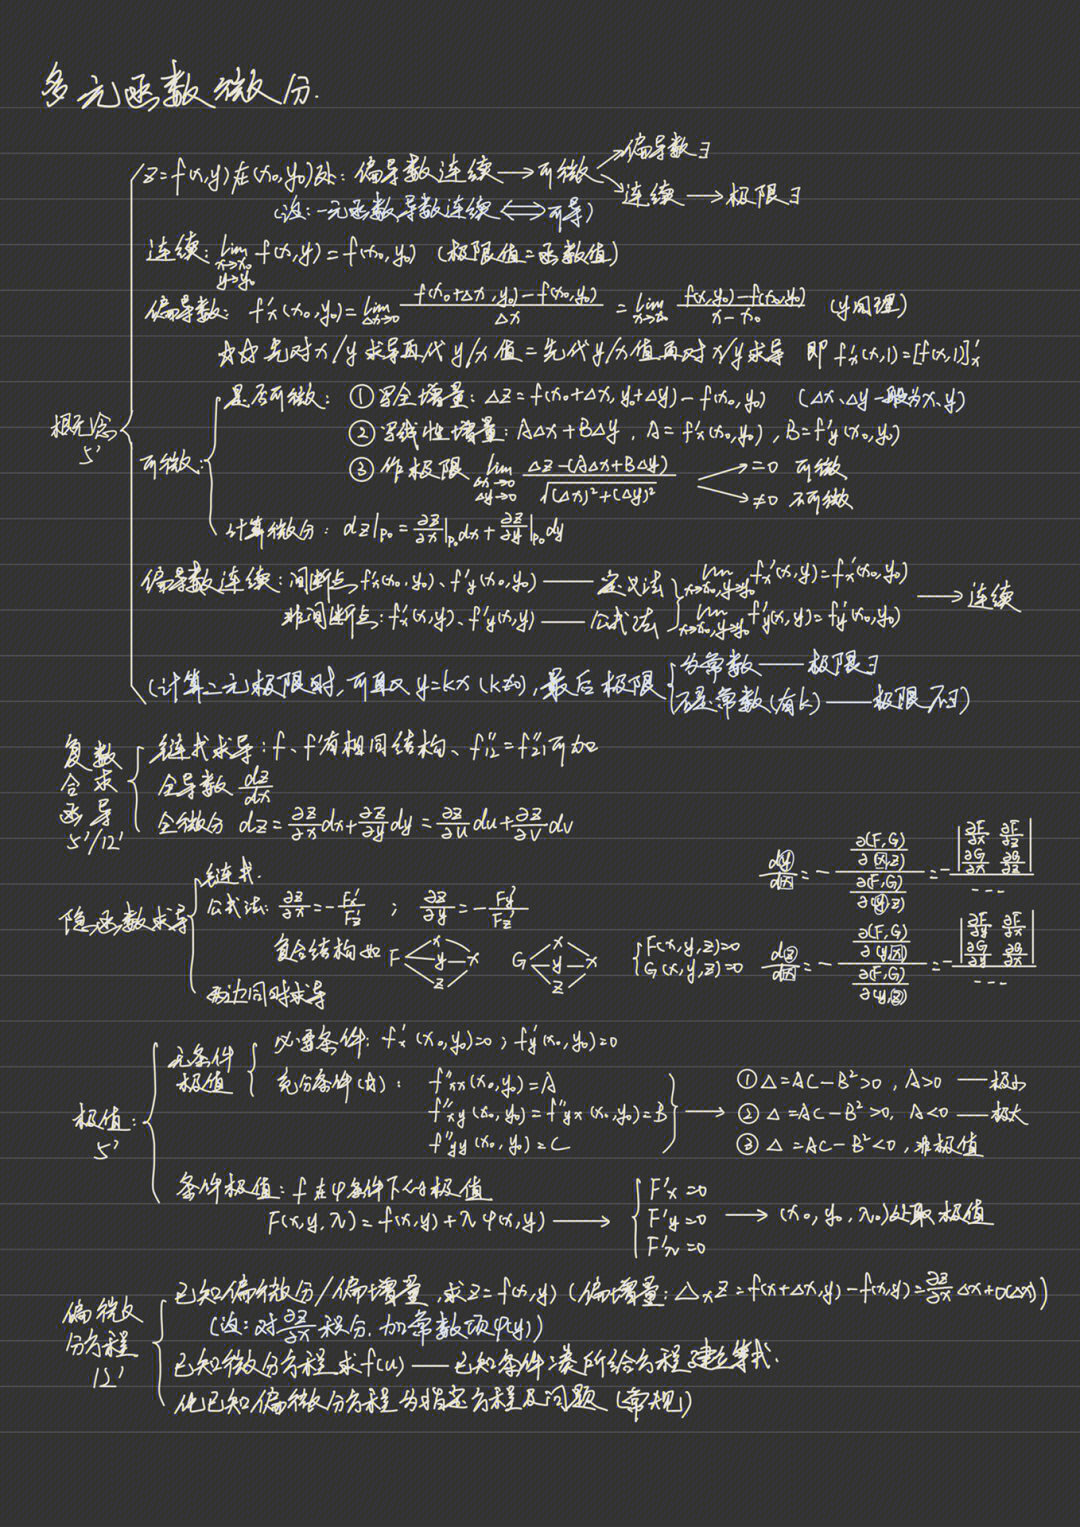 多元函数微分.
z=f(x,y)在(x₀,y₀)处: 偏导数连续 → 可微 → 偏导数∃
→ 连续 → 极限∃
(注: 一元函数导数连续 ⟺ 可导)
连续: lim_{x→x₀, y→y₀} f(x,y) = f(x₀,y₀) (极限值=函数值)
偏导数: f'x(x₀,y₀) = lim_{Δx→0} [f(x₀+Δx,y₀)-f(x₀,y₀)]/Δx = lim_{x→x₀} [f(x,y₀)-f(x₀,y₀)]/(x-x₀) (y同理)
☆☆ 先对x/y求导再代y/x值=先代y/x值再对x/y求导 即 f'x(x,1)=[f(x,1)]'x
概念
5'
可微:
是否可微: ①写全增量: Δz = f(x₀+Δx, y₀+Δy) - f(x₀,y₀) (Δx、Δy一般为x、y)
②写线性增量: AΔx+BΔy, A=f'x(x₀,y₀), B=f'y(x₀,y₀)
③作极限 lim_{Δx→0, Δy→0} [Δz-(AΔx+BΔy)]/√((Δx)²+(Δy)²) → =0 可微
→ ≠0 不可微
计算微分: dz|p₀ = ∂z/∂x|p₀ dx + ∂z/∂y|p₀ dy
偏导数连续: 间断点 f'x(x₀,y₀)、f'y(x₀,y₀) — 定义法 lim_{x→x₀,y→y₀} f'x(x,y)=f'x(x₀,y₀)
非间断点: f'x(x,y)、f'y(x,y) — 公式法 lim_{x→x₀,y→y₀} f'y(x,y)=f'y(x₀,y₀) → 连续
(计算二元极限时,可取y=kx(k≠0), 最后极限 为常数 — 极限∃
不是常数(有k) — 极限不∃)
复合函数求导
5'/12'
链式求导: f、f'有相同结构、f''₁₂=f''₂₁可加
全导数 dz/dx
全微分 dz = ∂z/∂x dx + ∂z/∂y dy = ∂z/∂u du + ∂z/∂v dv
隐函数求导
链式.
公式法: ∂z/∂x = -F'x/F'z ; ∂z/∂y = -F'y/F'z
复合结构如 F x y z x G x y z x { F(x,y,z)=0
G(x,y,z)=0
dy/dx = - [∂(F,G)/∂(x,z)]/[∂(F,G)/∂(y,z)] = - |∂F/∂x ∂F/∂z; ∂G/∂x ∂G/∂z| / ---
dz/dx = - [∂(F,G)/∂(y,x)]/[∂(F,G)/∂(y,z)] = - |∂F/∂y ∂F/∂x; ∂G/∂y ∂G/∂x| / ---
两边同时求导
极值:
5'
无条件极值
必要条件: f'x(x₀,y₀)=0; f'y(x₀,y₀)=0
充分条件: f''xx(x₀,y₀)=A
f''xy(x₀,y₀)=f''yx(x₀,y₀)=B
f''yy(x₀,y₀)=C
①Δ=AC-B²>0, A>0 — 极小
②Δ=AC-B²>0, A<0 — 极大
③Δ=AC-B²<0, 非极值
条件极值: f在φ条件下的极值
F(x,y,λ)=f(x,y)+λφ(x,y) → F'x=0
F'y=0 → (x₀,y₀,λ₀)处取极值
F'λ=0
偏微分方程
12'
已知偏微分/偏增量,求z=f(x,y) (偏增量: Δxz=f(x+Δx,y)-f(x,y)=∂z/∂x Δx+o(Δx))
(注: 对∂z/∂x积分,加常数项φ(y))
已知微分方程求f(u) — 已知条件凑所给方程建立等式.
化已知偏微分方程为指定方程及问题(常规)